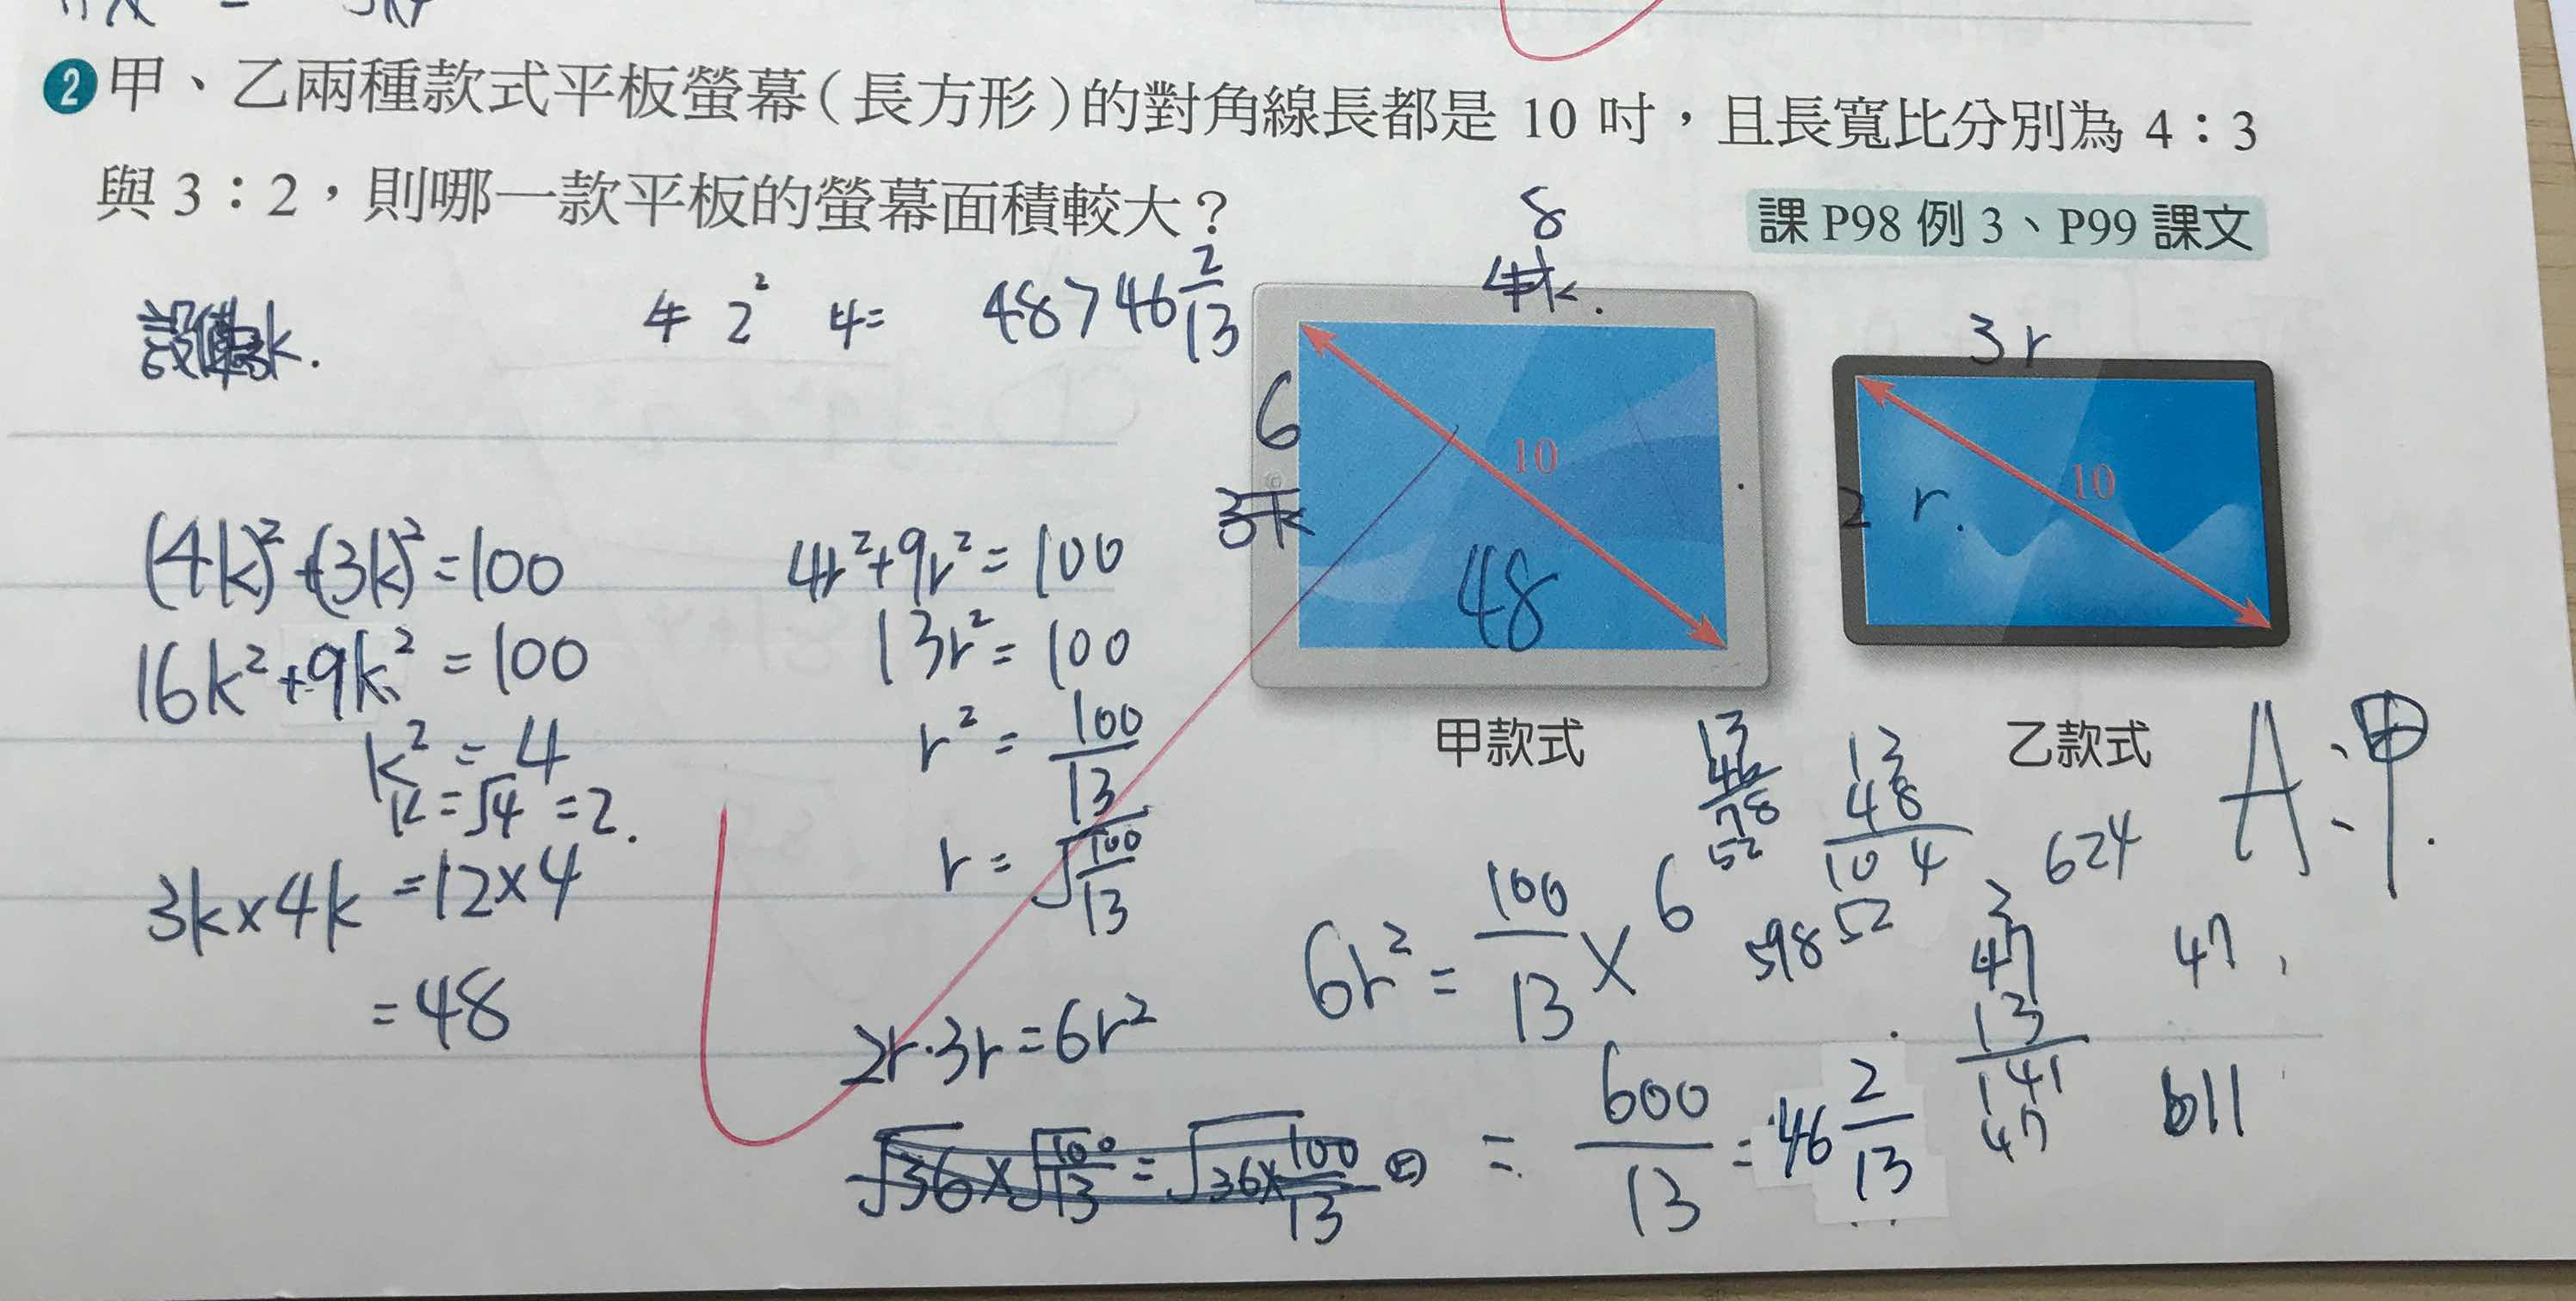 ❷甲、乙兩種款式平板螢幕(長方形)的對角線長都是 10 吋，且長寬比分別為 4：3
與 3：2，則哪一款平板的螢幕面積較大？
課 P98 例 3、P99 課文
設
k.
4 2² 4=
48>46 2/13
8
4k.
6
3k
10
48
甲款式
3r
2r.
10
乙款式
(4k)²+(3k)²=100
16k²+9k²=100
k²=4
k=√4=2.
3k×4k=12×4
=48
4r²+9r²=100
13r²=100
r²=100/13
r=√100/13
2r·3r=6r²
√36×√100/13=√36×100/13
6r²=100/13×6
=600/13=46 2/13
13
46
78
52
598
13
48
104
52
624
2
47
13
141
47
47
611
A:甲.